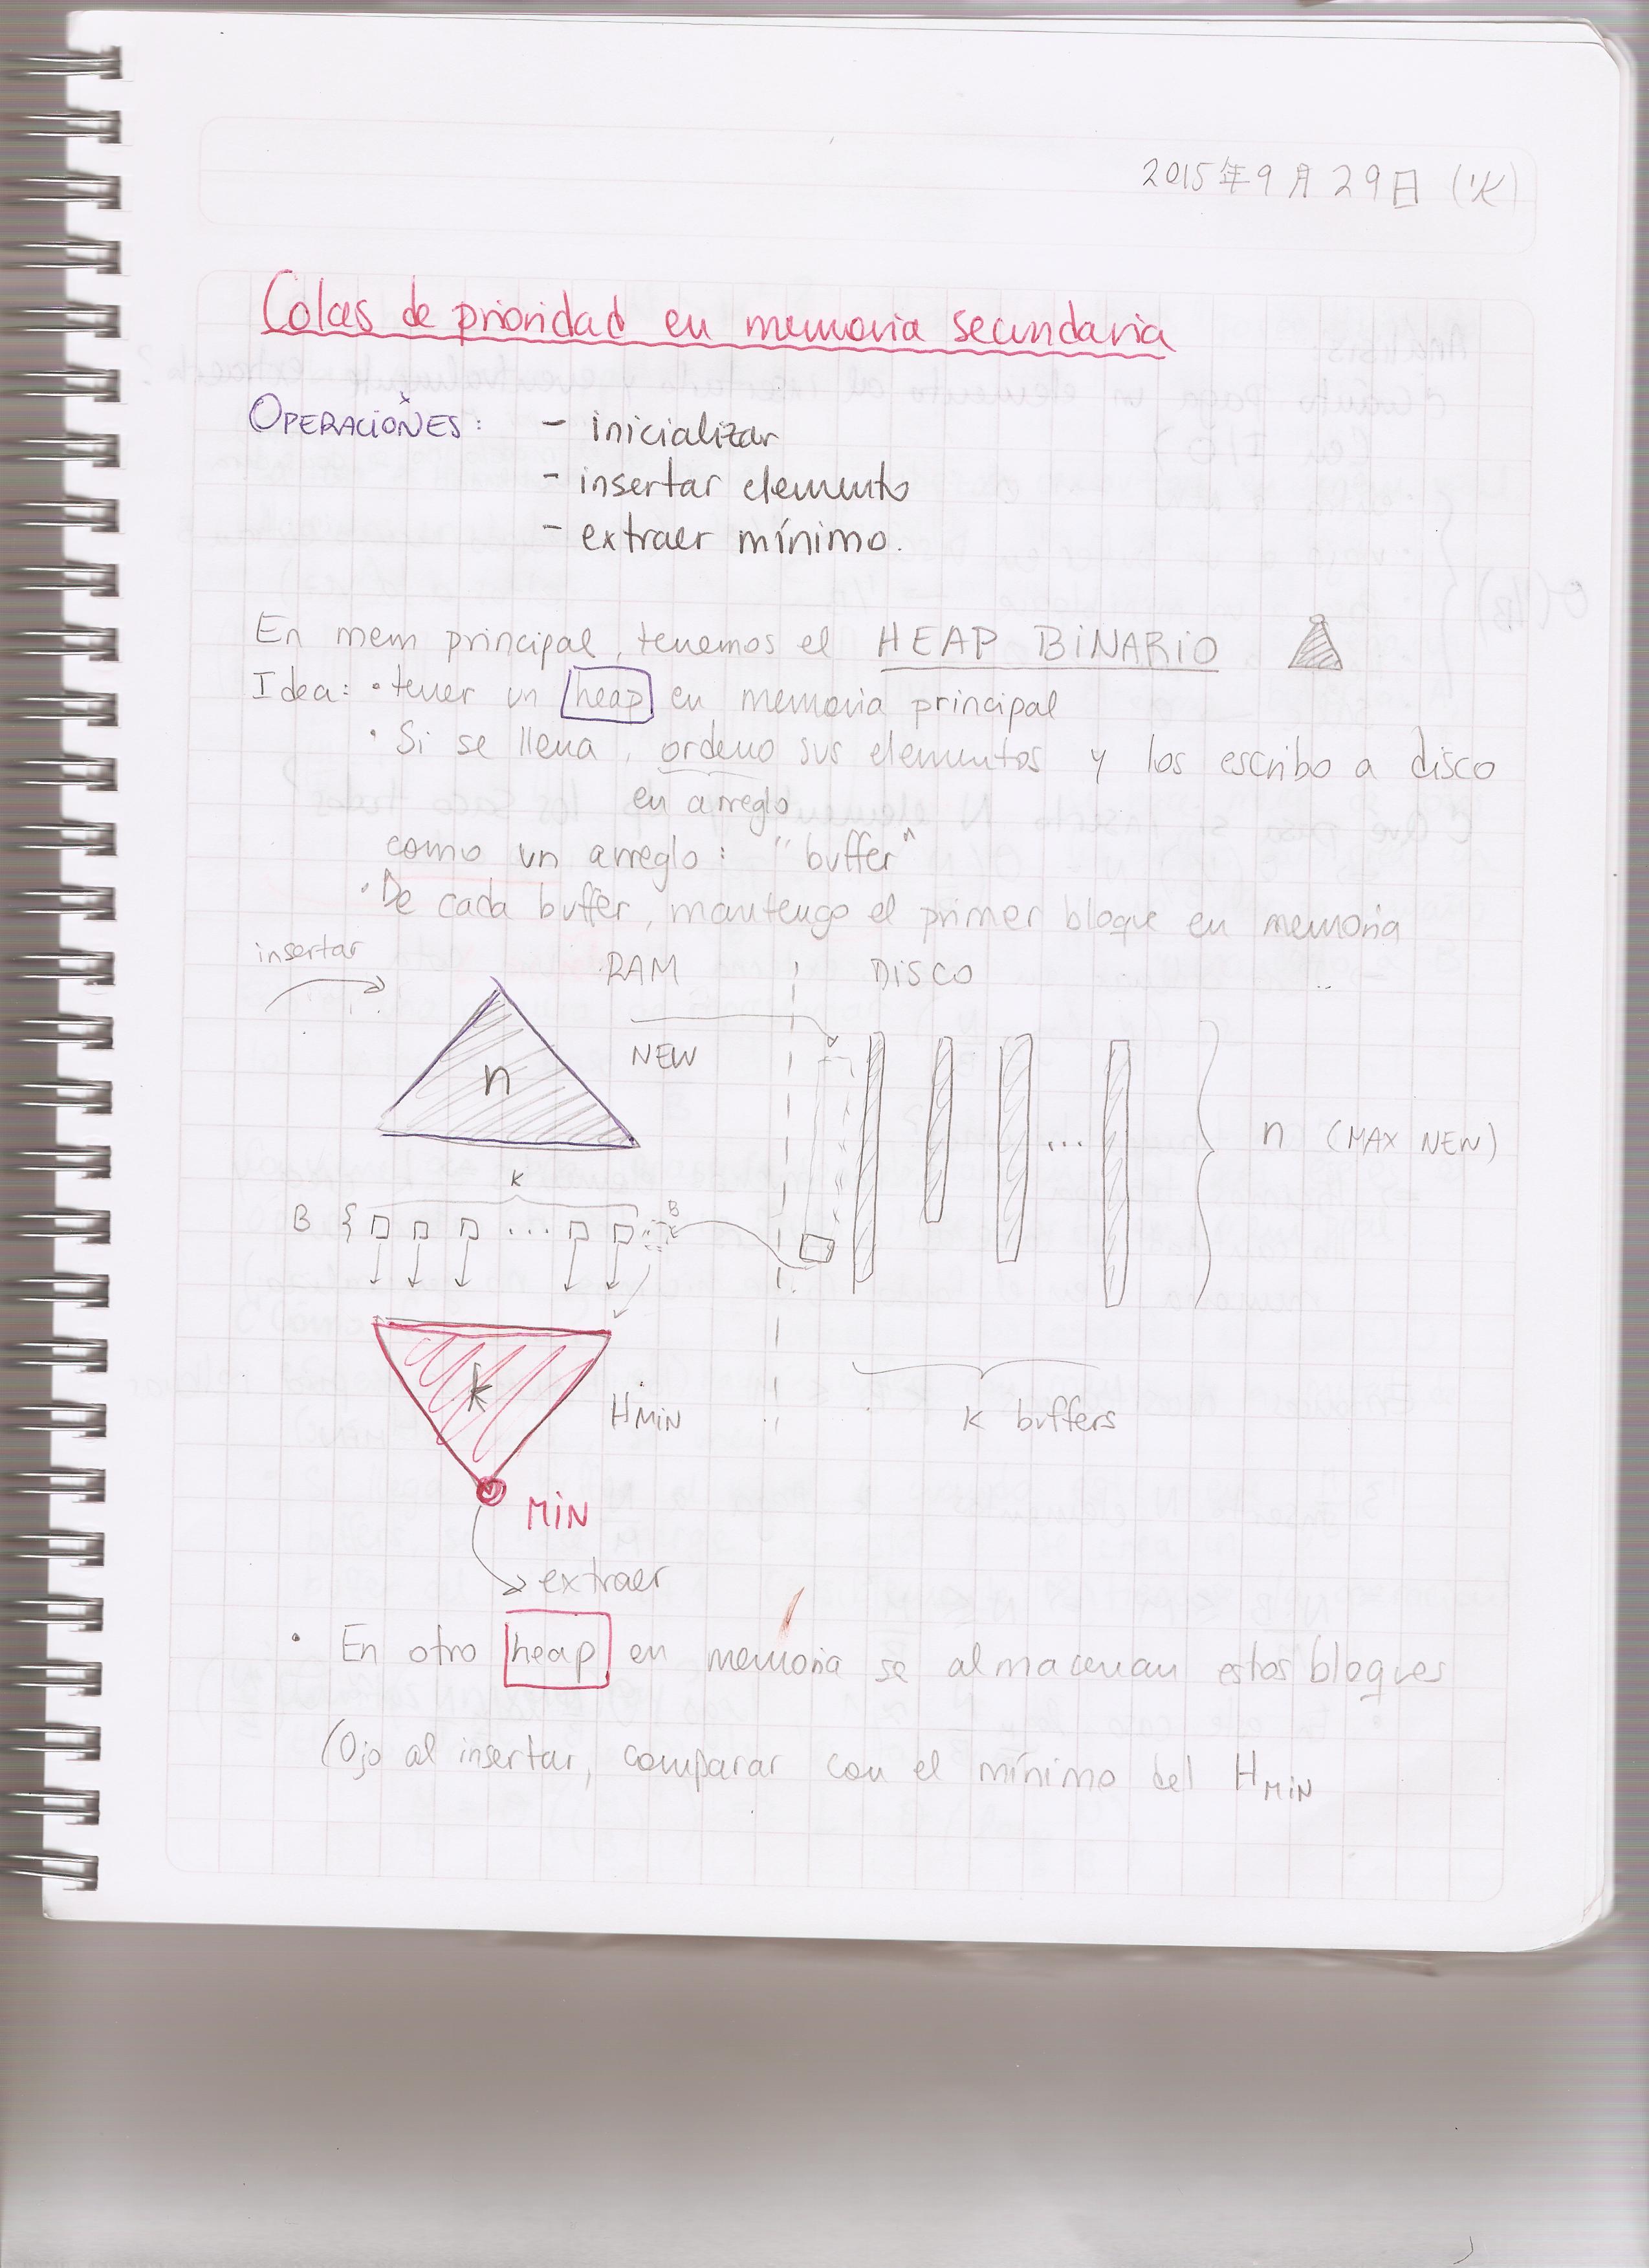 2015年9月29日(火)
Colas de prioridad en memoria secundaria
OPERACIONES: - inicializar
- insertar elemento
- extraer mínimo.
En mem principal, tenemos el HEAP BINARIO
Idea: • tener un heap en memoria principal
• Si se llena, ordeno sus elementos y los escribo a disco
en arreglo
como un arreglo: "buffer"
• De cada buffer, mantengo el primer bloque en memoria
insertar RAM DISCO
NEW
n
n (MAX NEW)
k
B { ... B
...
k
HMIN
k buffers
MIN
extraer
• En otro heap en memoria se almacenan estos bloques
(Ojo al insertar, comparar con el mínimo del HMIN